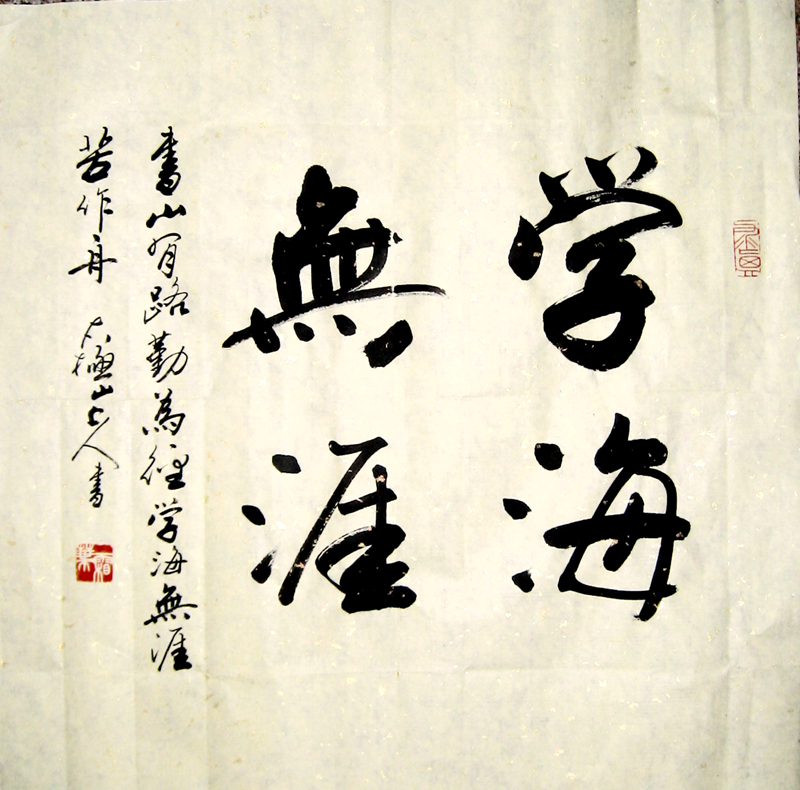 学海
無涯
書山有路勤為徑学海無涯
苦作舟 太極山上人書